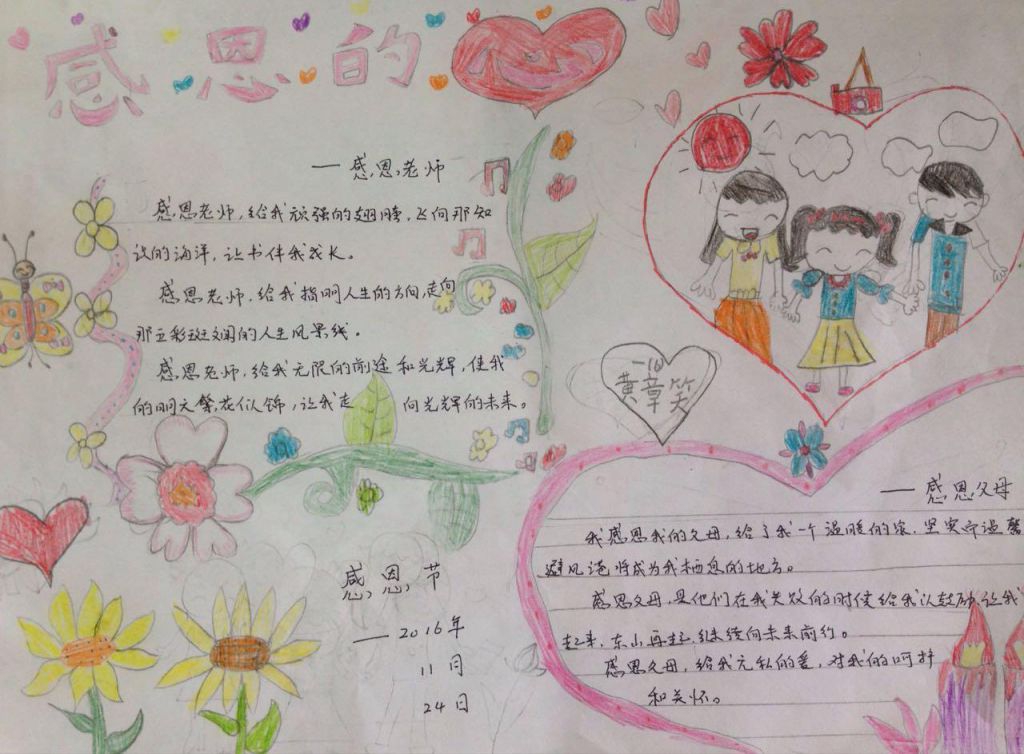 感恩的心
——感恩老师
感恩老师，给我顽强的翅膀，飞向那知
识的海洋，让书伴我成长。
感恩老师，给我指明人生的方向，走向
那五彩斑斓的人生风景线。
感恩老师，给我无限的前途和光辉，使我
的明天繁花似锦，让我走向光辉的未来。
一(6)
黄章笑
感恩节
——2016年
11月
24日
——感恩父母
我感恩我的父母，给了我一个温暖的家，坚实而温馨
避风港将成为我栖息的地方。
感恩父母，是他们在我失败的时候给我以鼓励，让我
起来，东山再起，继续向未来前行。
感恩父母，给我无私的爱，对我的呵护
和关怀。